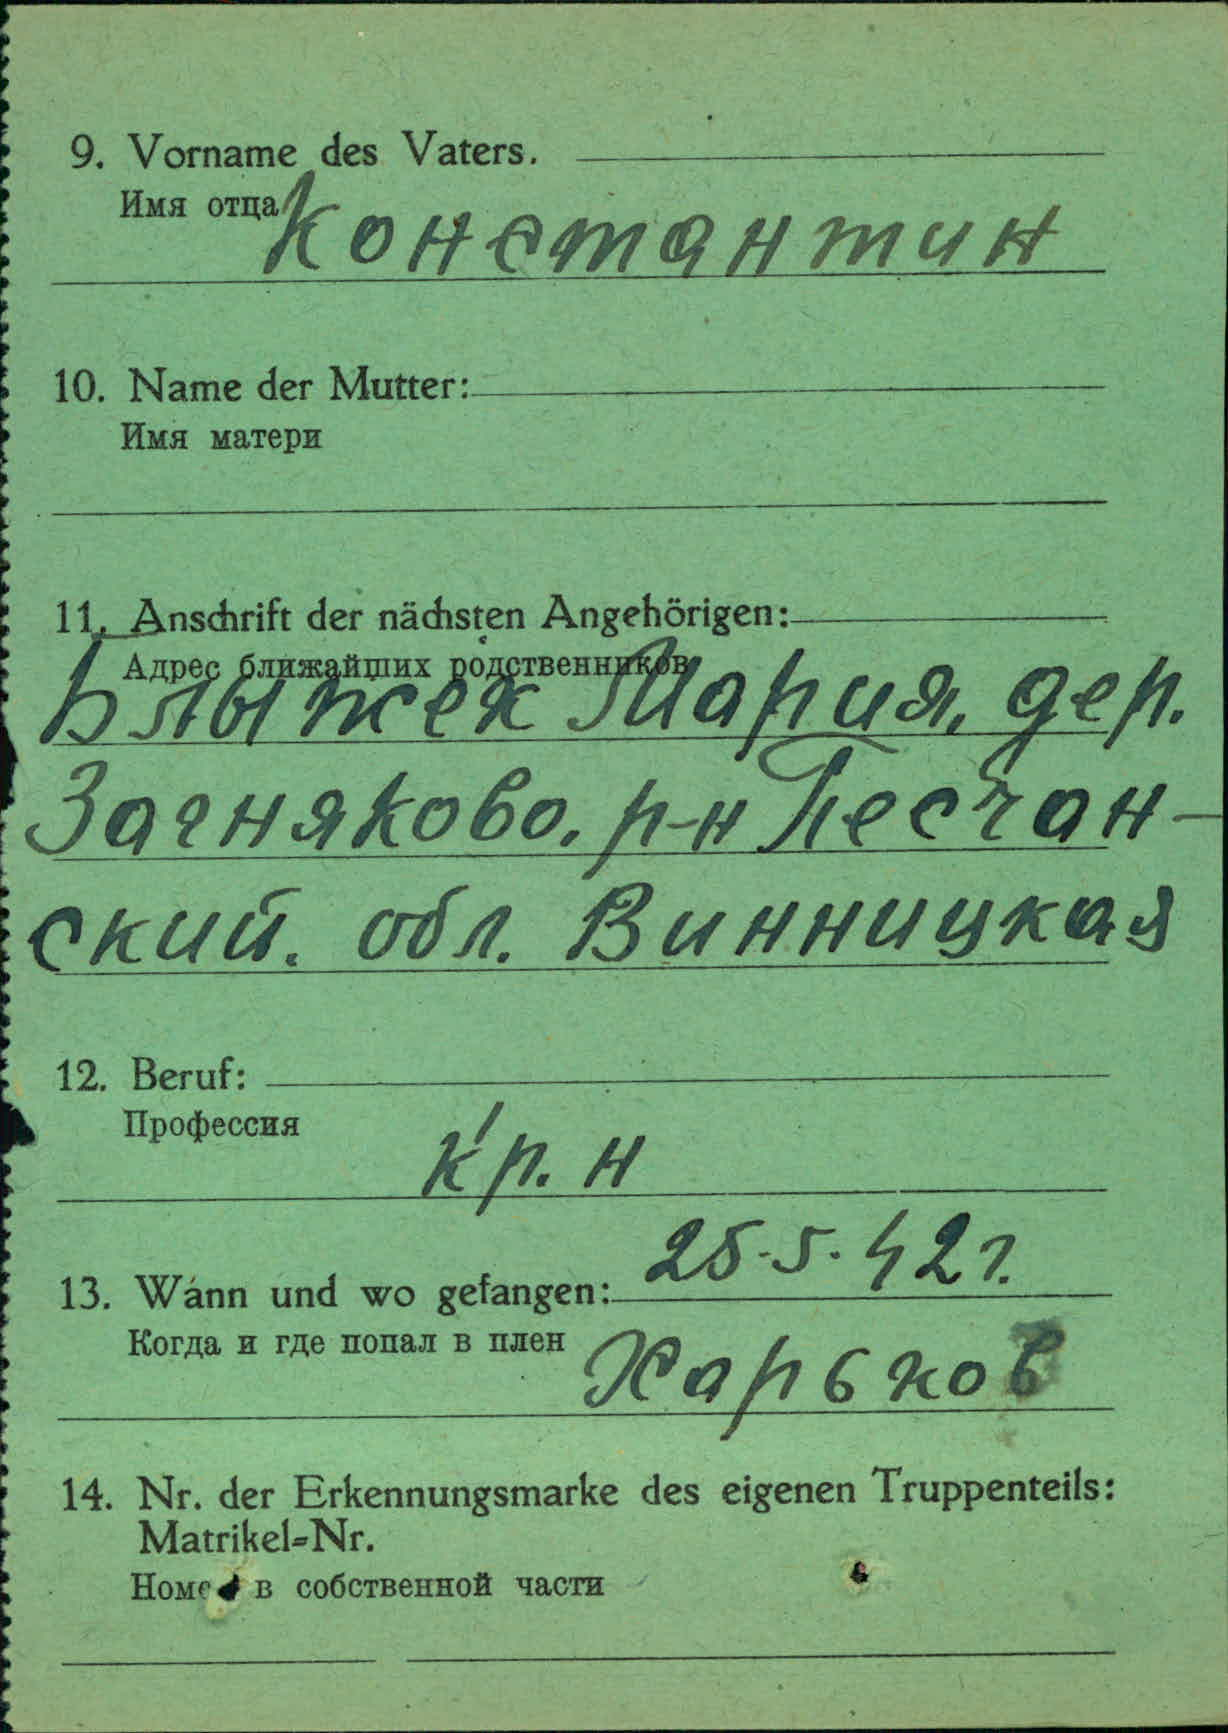 9. Vorname des Vaters.
Имя отца
Константин
10. Name der Mutter:
Имя матери
11. Anschrift der nächsten Angehörigen:
Адрес ближайших родственников
Мария, дер.
Загняково. р-н Песчан-
ский. обл. Винницкая
12. Beruf:
Профессия
кр. н
13. Wann und wo gefangen: 25.5.42 г.
Когда и где попал в плен
Харьков
14. Nr. der Erkennungsmarke des eigenen Truppenteils:
Matrikel-Nr.
в собственной части